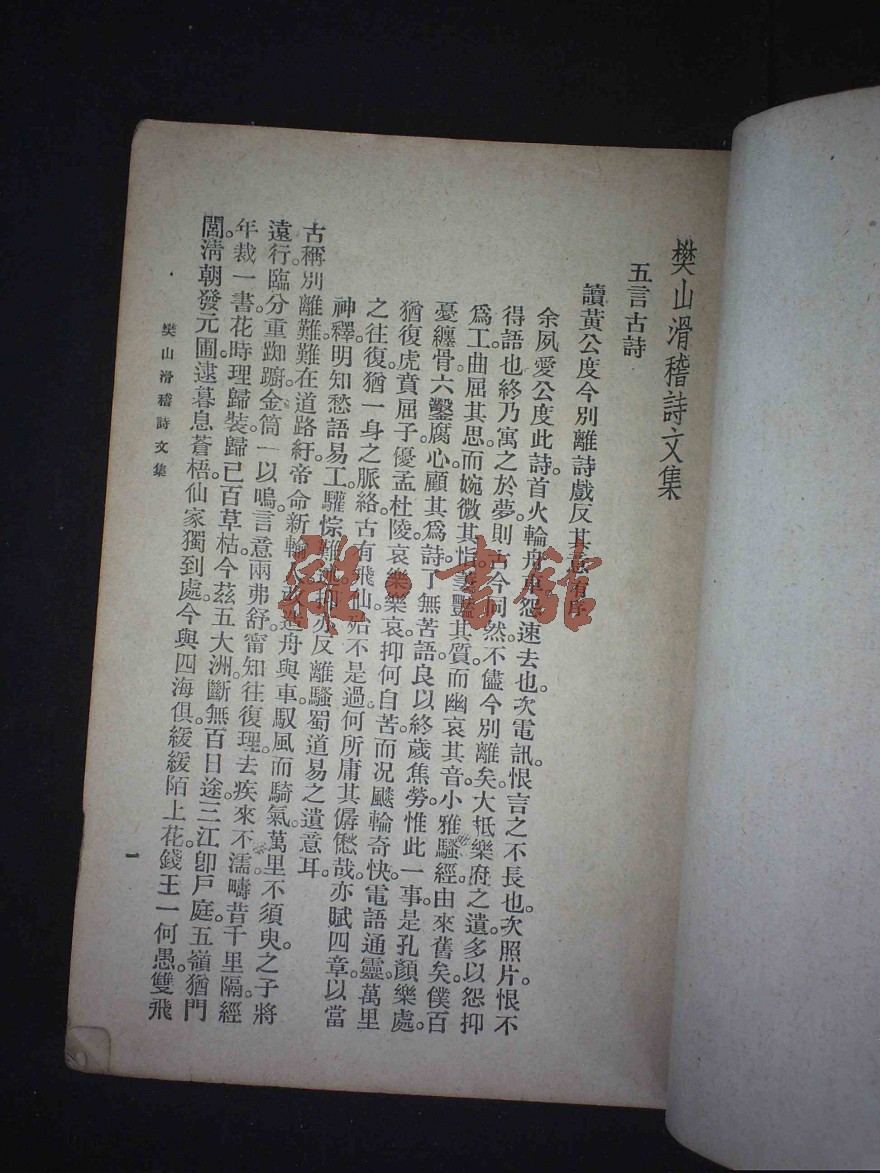 樊山滑稽詩文集
五言古詩
讀黃公度今別離詩戲反其意有序
余夙愛公度此詩首火輪舟車怨速去也。次電訊。恨言之不長也。次照片。恨不
得語也終乃寓之於夢。則古今同然。不儘今別離矣。大抵樂府之遺多以怨抑
爲工曲屈其思。而婉微其恉。豔其質。而幽哀其音。小雅騷經。由來舊矣。僕百
憂纏骨六鑿腐心。顧其爲詩。了無苦語。良以終歲焦勞。惟此一事。是孔顏樂處。
猶復虎賁屈子優孟杜陵。哀樂樂哀。抑何自苦。而况飈輪奇快。電語通靈。萬里
之往復。猶一身之脈絡。古有飛仙。殆不是過。何所庸其僝僽哉。亦賦四章。以當
神釋。明知愁語易工。驩悰難。亦反離騷蜀道易之遺意耳。
古稱別離難。難在道路紆。帝命新輪。改造舟與車。馭風而騎氣。萬里不須臾。之子將
遠行。臨分重踟躕。金筒一以嗚。言意兩弗舒。甯知往復理。去疾來不濡。疇昔千里隔。經
年裁一書。花時理歸裝。歸已百草枯。今茲五大洲。斷無百日途。三江卽戶庭。五嶺猶門
閭。淸朝發元圃。逮暮息蒼梧。仙家獨到處。今與四海俱。緩緩陌上花。錢王一何愚。雙飛
樊山滑稽詩文集
一
雜書館